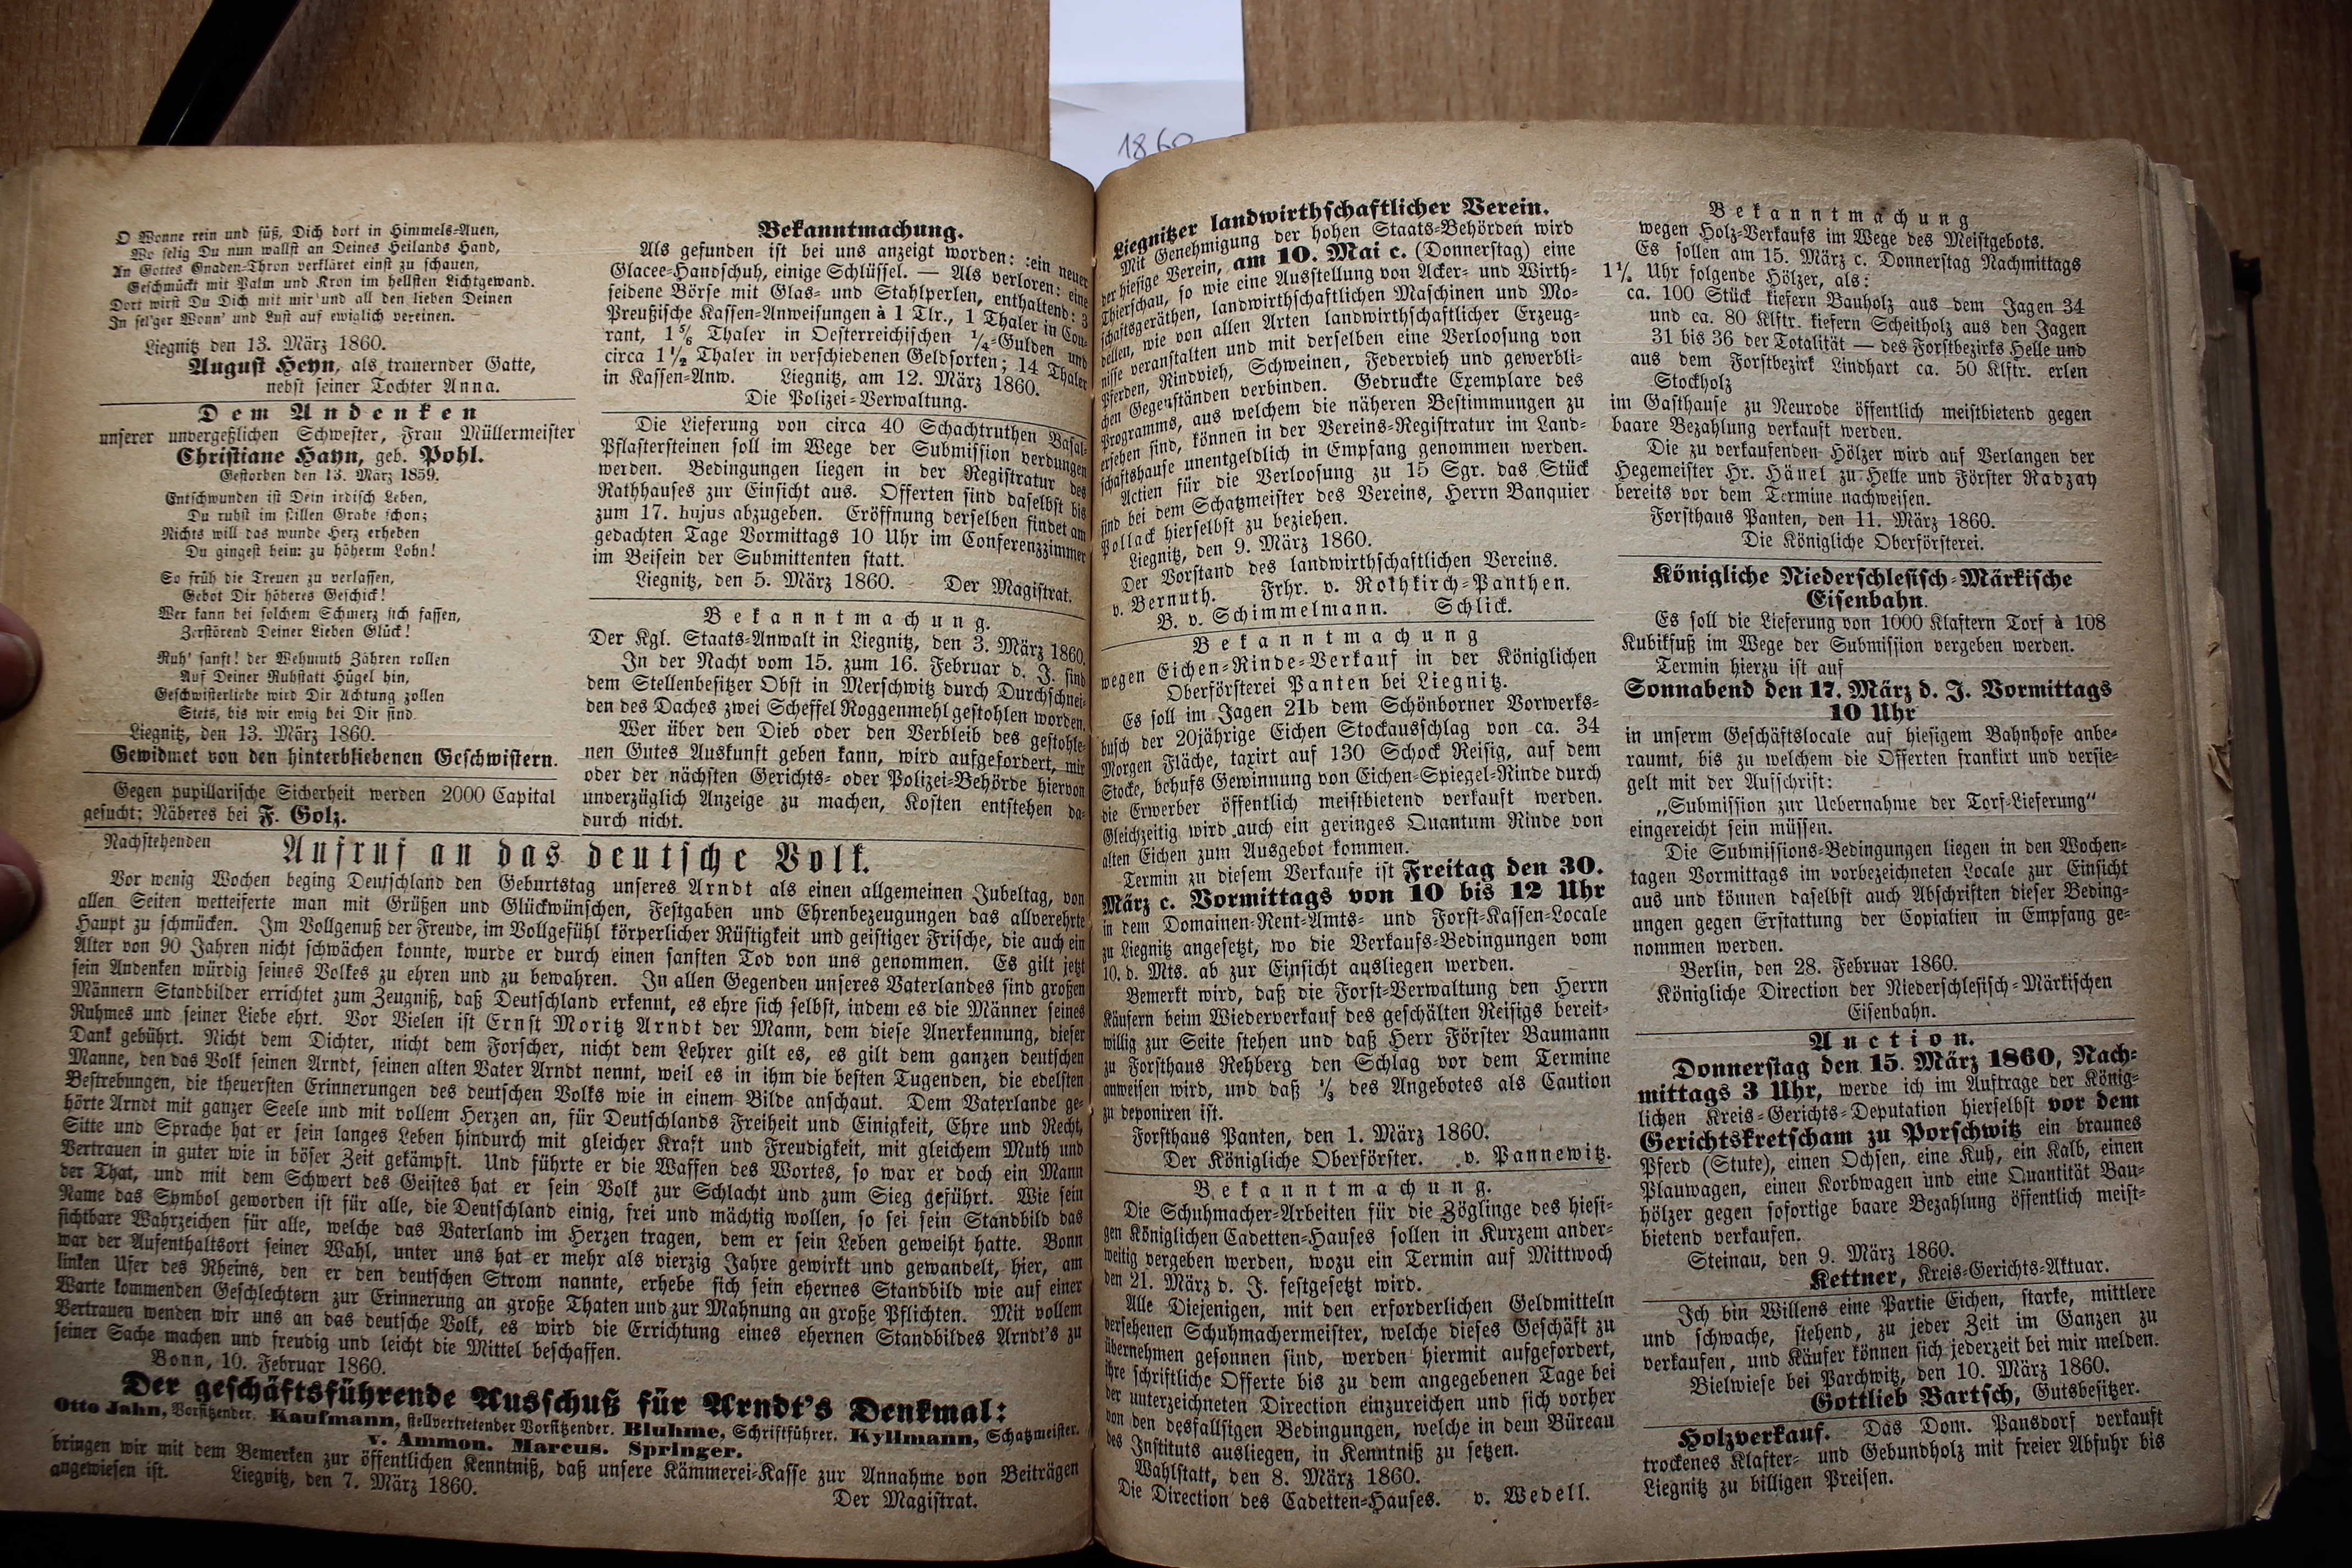 1860
O Wonne rein und süß, Dich dort in Himmels-Auen,
Wo selig Du nun wallst an Deines Heilands Hand,
An Gottes Gnaden-Thron verkläret einst zu schauen,
Geschmückt mit Palm und Kron im hellsten Lichtgewand.
Dort wirst Du Dich mit mir und all den lieben Deinen
In sel'ger Wonn' und Lust auf ewiglich vereinen.
Liegnitz den 13. März 1860.
August Heyn, als trauernder Gatte,
nebst seiner Tochter Anna.
Dem Andenken
unserer undergeßlichen Schwester, Frau Müllermeister
Christiane Hayn, geb. Pohl.
Gestorben den 13. März 1859.
Entschwunden ist Dein irdisch Leben,
Du ruhst im stillen Grabe schon;
Nichts will das wunde Herz erheben
Du gingest beim zu höherm Lohn!
So früh die Treuen zu verlassen,
Gebot Dir höheres Geschick!
Wer kann bei solchem Schmerz sich fassen,
Zerstörend Deiner Lieben Glück!
Ruh' sanft! der Wehmuth Zähren rollen
Auf Deiner Ruhstatt Hügel hin,
Geschwisterliebe wird Dir Achtung zollen
Stets, bis wir ewig bei Dir sind.
Liegnitz, den 13. März 1860.
Gewidmet von den hinterbliebenen Geschwistern.
Gegen pupillarische Sicherheit werden 2000 Capital
gesucht; Näheres bei F. Golz.
Bekanntmachung.
Als gefunden ist bei uns anzeigt worden: :ein neuer
Glacee-Handschuh, einige Schlüssel. — Als verloren: eine
seidene Börse mit Glas- und Stahlperlen, enthaltend: 3
Preußische Kassen-Anweisungen à 1 Tlr., 1 Thaler in Cou-
rant, 1 5/6 Thaler in Oesterreichischen 1/4-Gulden und
circa 1 1/2 Thaler in verschiedenen Geldsorten; 14 Thaler
in Kassen-Anw. Liegnitz, am 12. März 1860.
Die Polizei-Verwaltung.
Die Lieferung von circa 40 Schachtruthen Basal-
Pflastersteinen soll im Wege der Submission verdungen
werden. Bedingungen liegen in der Registratur des
Rathhauses zur Einsicht aus. Offerten sind daselbst bis
zum 17. hujus abzugeben. Eröffnung derselben findet am
gedachten Tage Vormittags 10 Uhr im Conferenzzimmer
im Beisein der Submittenten statt.
Liegnitz, den 5. März 1860. Der Magistrat.
Bekanntmachung.
Der Kgl. Staats-Anwalt in Liegnitz, den 3. März 1860.
In der Nacht vom 15. zum 16. Februar d. J. sind
dem Stellenbesitzer Obst in Merschwitz durch Durchschnei-
den des Daches zwei Scheffel Roggenmehl gestohlen worden.
Wer über den Dieb oder den Verbleib des gestohle-
nen Gutes Auskunft geben kann, wird aufgefordert, mir
oder der nächsten Gerichts- oder Polizei-Behörde hiervon
unverzüglich Anzeige zu machen, Kosten entstehen da-
durch nicht.
Nachstehenden
Aufruf an das deutsche Volk.
Vor wenig Wochen beging Deutschland den Geburtstag unseres Arndt als einen allgemeinen Jubeltag, von
allen Seiten wetteiferte man mit Grüßen und Glückwünschen, Festgaben und Ehrenbezeugungen das allverehrte
Haupt zu schmücken. Im Vollgenuß der Freude, im Vollgefühl körperlicher Rüstigkeit und geistiger Frische, die auch ein
Alter von 90 Jahren nicht schwächen konnte, wurde er durch einen sanften Tod von uns genommen. Es gilt jetzt
sein Andenken würdig seines Volkes zu ehren und zu bewahren. In allen Gegenden unseres Vaterlandes sind großen
Männern Standbilder errichtet zum Zeugniß, daß Deutschland erkennt, es ehre sich selbst, indem es die Männer seines
Ruhmes und seiner Liebe ehrt. Vor Vielen ist Ernst Moritz Arndt der Mann, dem diese Anerkennung, dieser
Dank gebührt. Nicht dem Dichter, nicht dem Forscher, nicht dem Lehrer gilt es, es gilt dem ganzen deutschen
Manne, den das Volk seinen Arndt, seinen alten Vater Arndt nennt, weil es in ihm die besten Tugenden, die edelsten
Bestrebungen, die theuersten Erinnerungen des deutschen Volks wie in einem Bilde anschaut. Dem Vaterlande ge-
hörte Arndt mit ganzer Seele und mit vollem Herzen an, für Deutschlands Freiheit und Einigkeit, Ehre und Recht,
Sitte und Sprache hat er sein langes Leben hindurch mit gleicher Kraft und Freudigkeit, mit gleichem Muth und
Vertrauen in guter wie in böser Zeit gekämpft. Und führte er die Waffen des Wortes, so war er doch ein Mann
der That, und mit dem Schwert des Geistes hat er sein Volk zur Schlacht und zum Sieg geführt. Wie sein
Name das Symbol geworden ist für alle, die Deutschland einig, frei und mächtig wollen, so sei sein Standbild das
sichtbare Wahrzeichen für alle, welche das Vaterland im Herzen tragen, dem er sein Leben geweiht hatte. Bonn
war der Aufenthaltsort seiner Wahl, unter uns hat er mehr als vierzig Jahre gewirkt und gewandelt, hier, am
linken Ufer des Rheins, den er den deutschen Strom nannte, erhebe sich sein ehernes Standbild wie auf einer
Warte kommenden Geschlechtern zur Erinnerung an große Thaten und zur Mahnung an große Pflichten. Mit vollem
Vertrauen wenden wir uns an das deutsche Volk, es wird die Errichtung eines ehernen Standbildes Arndt's zu
seiner Sache machen und freudig und leicht die Mittel beschaffen.
Bonn, 10. Februar 1860.
Der geschäftsführende Ausschuß für Arndt's Denkmal:
Otto Jahn, Vorsitzender. Kaufmann, stellvertretender Vorsitzender. Bluhme, Schriftführer. Kyllmann, Schatzmeister.
v. Ammon. Marcus. Springer.
bringen wir mit dem Bemerken zur öffentlichen Kenntniß, daß unsere Kämmerei-Kasse zur Annahme von Beiträgen
angewiesen ist. Liegnitz, den 7. März 1860.
Der Magistrat.
Liegnitzer landwirthschaftlicher Verein.
Mit Genehmigung der hohen Staats-Behörden wird
der hiesige Verein, am 10. Mai c. (Donnerstag) eine
Thierschau, so wie eine Ausstellung von Acker- und Wirth-
schaftsgeräthen, landwirthschaftlichen Maschinen und Mo-
dellen, wie von allen Arten landwirthschaftlicher Erzeug-
nisse veranstalten und mit derselben eine Verloosung von
Pferden, Rindvieh, Schweinen, Federvieh und gewerbli-
chen Gegenständen verbinden. Gedruckte Exemplare des
Programms, aus welchem die näheren Bestimmungen zu
ersehen sind, können in der Vereins-Registratur im Land-
schaftshause unentgeldlich in Empfang genommen werden.
Actien für die Verloosung zu 15 Sgr. das Stück
sind bei dem Schatzmeister des Vereins, Herrn Banquier
Pollack hierselbst zu beziehen.
Liegnitz, den 9. März 1860.
Der Vorstand des landwirthschaftlichen Vereins.
v. Bernuth. Frhr. v. Rothkirch-Panthen.
B. v. Schimmelmann. Schlick.
Bekanntmachung
wegen Eichen-Rinde-Verkauf in der Königlichen
Oberförsterei Panten bei Liegnitz.
Es soll im Jagen 21b dem Schönborner Vorwerks-
busch der 20jährige Eichen Stockausschlag von ca. 34
Morgen Fläche, taxirt auf 130 Schock Reisig, auf dem
Stocke, behufs Gewinnung von Eichen-Spiegel-Rinde durch
die Erwerber öffentlich meistbietend verkauft werden.
Gleichzeitig wird auch ein geringes Quantum Rinde von
alten Eichen zum Ausgebot kommen.
Termin zu diesem Verkaufe ist Freitag den 30.
März c. Vormittags von 10 bis 12 Uhr
in dem Domainen-Rent-Amts- und Forst-Kassen-Locale
zu Liegnitz angesetzt, wo die Verkaufs-Bedingungen vom
10. d. Mts. ab zur Einsicht ausliegen werden.
Bemerkt wird, daß die Forst-Verwaltung den Herrn
Käufern beim Wiederverkauf des geschälten Reisigs bereit-
willig zur Seite stehen und daß Herr Förster Baumann
zu Forsthaus Rehberg den Schlag vor dem Termine
anweisen wird, und daß 1/3 des Angebotes als Caution
zu deponiren ist.
Forsthaus Panten, den 1. März 1860.
Der Königliche Oberförster. v. Pannewitz.
Bekanntmachung.
Die Schuhmacher-Arbeiten für die Zöglinge des hiesi-
gen Königlichen Cadetten-Hauses sollen in Kurzem ander-
weitig vergeben werden, wozu ein Termin auf Mittwoch
den 21. März d. J. festgesetzt wird.
Alle Diejenigen, mit den erforderlichen Geldmitteln
versehenen Schuhmachermeister, welche dieses Geschäft zu
übernehmen gesonnen sind, werden hiermit aufgefordert,
ihre schriftliche Offerte bis zu dem angegebenen Tage bei
der unterzeichneten Direction einzureichen und sich vorher
von den desfallsigen Bedingungen, welche in dem Büreau
des Instituts ausliegen, in Kenntniß zu setzen.
Wahlstatt, den 8. März 1860.
Die Direction des Cadetten-Hauses. v. Wedell.
Bekanntmachung
wegen Holz-Verkaufs im Wege des Meistgebots.
Es sollen am 15. März c. Donnerstag Nachmittags
1 1/2 Uhr folgende Hölzer, als:
ca. 100 Stück kiefern Bauholz aus dem Jagen 34
und ca. 80 Klftr. kiefern Scheitholz aus den Jagen
31 bis 36 der Totalität — des Forstbezirks Helle und
aus dem Forstbezirk Lindhart ca. 50 Klftr. erlen
Stockholz
im Gasthause zu Neurode öffentlich meistbietend gegen
baare Bezahlung verkauft werden.
Die zu verkaufenden Hölzer wird auf Verlangen der
Hegemeister Hr. Hänel zu Helle und Förster Radzay
bereits vor dem Termine nachweisen.
Forsthaus Panten, den 11. März 1860.
Die Königliche Oberförsterei.
Königliche Niederschlesisch-Märkische
Eisenbahn.
Es soll die Lieferung von 1000 Klaftern Torf à 108
Kubikfuß im Wege der Submission vergeben werden.
Termin hierzu ist auf
Sonnabend den 17. März d. J. Vormittags
10 Uhr
in unserm Geschäftslocale auf hiesigem Bahnhofe anbe-
raumt, bis zu welchem die Offerten frankirt und versie-
gelt mit der Aufschrift:
„Submission zur Uebernahme der Torf-Lieferung"
eingereicht sein müssen.
Die Submissions-Bedingungen liegen in den Wochen-
tagen Vormittags im vorbezeichneten Locale zur Einsicht
aus und können daselbst auch Abschriften dieser Beding-
ungen gegen Erstattung der Copialien in Empfang ge-
nommen werden.
Berlin, den 28. Februar 1860.
Königliche Direction der Niederschlesisch-Märkischen
Eisenbahn.
Auction.
Donnerstag den 15. März 1860, Nach-
mittags 3 Uhr, werde ich im Auftrage der König-
lichen Kreis-Gerichts-Deputation hierselbst vor dem
Gerichtskretscham zu Porschwitz ein braunes
Pferd (Stute), einen Ochsen, eine Kuh, ein Kalb, einen
Plauwagen, einen Korbwagen und eine Quantität Bau-
hölzer gegen sofortige baare Bezahlung öffentlich meist-
bietend verkaufen.
Steinau, den 9. März 1860.
Kettner, Kreis-Gerichts-Aktuar.
Ich bin Willens eine Partie Eichen, starke, mittlere
und schwache, stehend, zu jeder Zeit im Ganzen zu
verkaufen, und Käufer können sich jederzeit bei mir melden.
Bielwiese bei Parchwitz, den 10. März 1860.
Gottlieb Bartsch, Gutsbesitzer.
Holzverkauf. Das Dom. Pansdorf verkauft
trockenes Klafter- und Gebundholz mit freier Abfuhr bis
Liegnitz zu billigen Preisen.